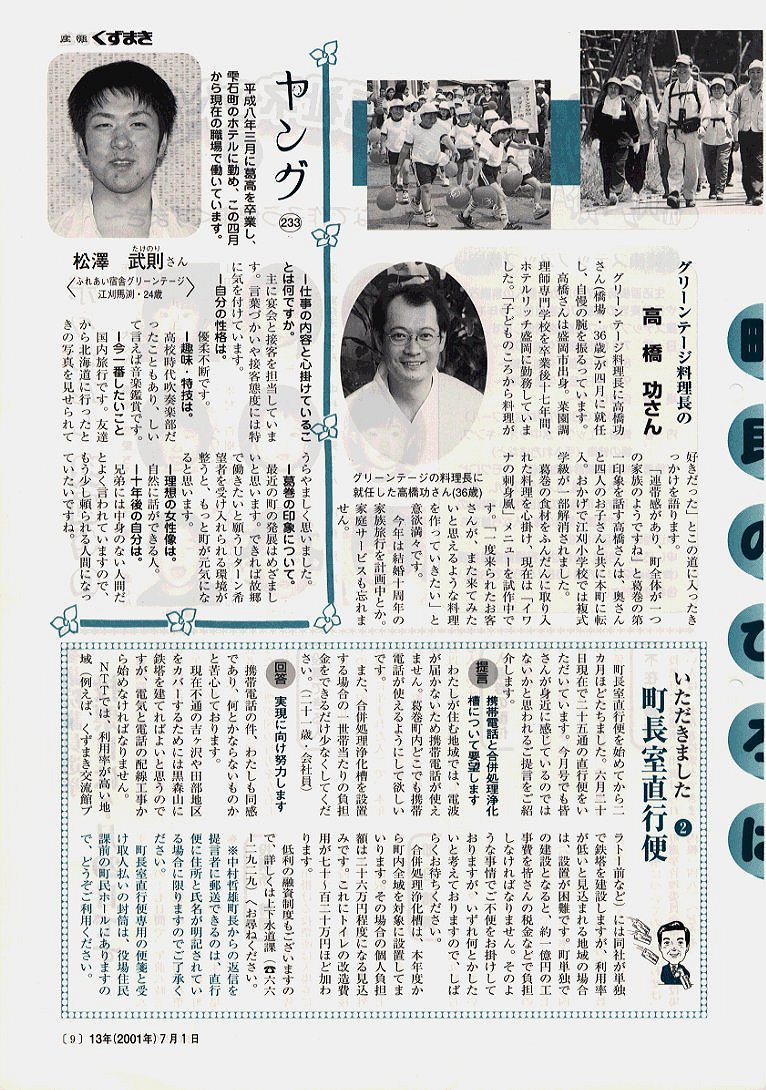 広報 くずまき
町民のひろば
グリーンテージ料理長の
高橋 功さん
グリーンテージ料理長に高橋功
さん(橋場・36歳)が四月に就任
し、自慢の腕を振るっています。
高橋さんは盛岡市出身。菜園調
理師専門学校を卒業後十七年間、
ホテルリッチ盛岡に勤務していま
した。「子どものころから料理が
好きだった」とこの道に入ったき
っかけを語ります。
「連帯感があり、町全体が一つ
の家族のようですね」と葛巻の第
一印象を話す高橋さんは、奥さん
と四人のお子さんと共に本町に転
入。おかげで江刈小学校では複式
学級が一部解消されました。
葛巻の食材をふんだんに取り入
れた料理を心掛け、現在は「イワ
ナの刺身風」メニューを試作中で
す。「一度来られたお客
さんが、また来てみた
いと思えるような料理
を作っていきたい」と
意欲満々です。
今年は結婚十周年の
家族旅行を計画中とか。
家庭サービスも忘れま
せん。
グリーンテージの料理長に
就任した高橋功さん(36歳)
ヤング
233
平成八年三月に葛高を卒業し、
雫石町のホテルに勤め、この四月
から現在の職場で働いています。
松澤 武則さん
たけのり
〈ふれあい宿舎グリーンテージ〉
江刈馬渕・24歳
ー仕事の内容と心掛けているこ
とは何ですか。
主に宴会と接客を担当していま
す。言葉づかいや接客態度には特
に気を付けています。
ー自分の性格は。
優柔不断です。
ー趣味・特技は。
高校時代吹奏楽部だ
ったこともあり、しい
て言えば音楽鑑賞です。
ー今一番したいこと
国内旅行です。友達
から北海道に行ったと
きの写真を見せられて
うらやましく思いました。
ー葛巻の印象について。
最近の町の発展はめざまし
いと思います。できれば故郷
で働きたいと願うUターン希
望者を受け入れられる環境が
整うと、もっと町が元気にな
ると思います。
ー理想の女性像は。
自然に話ができる人。
ー十年後の自分は。
兄弟には中身のない人間だ
とよく言われていますので、
もう少し頼られる人間になっ
ていたいですね。
いただきました
町長室直行便
2
町民室直行便を始めてから二
カ月ほどたちました。六月二十
日現在で二十五通の直行便をい
ただいています。今月号でも皆
さんが身近に感じているのでは
ないかと思われるご提言をご紹
介します。
提言 携帯電話と合併処理浄化
槽について要望します
わたしが住む地域では、電波
が届かないため携帯電話が使え
ません。葛巻町内どこでも携帯
電話が使えるようにして欲しい
です。
また、合併処理浄化槽を設置
する場合の一世帯当たりの負担
金をできるだけ少なくしてくだ
さい。(二十一歳・会社員)
回答 実現に向け努力します
携帯電話の件、わたしも同感
であり、何とかならないものか
と苦心しております。
現在不通の吉ヶ沢や田部地区
をカバーするためには黒森山に
鉄塔を建てればよいと思うので
すが、電気と電話の配線工事か
ら始めなければなりません。
NTTでは、利用率が高い地
域(例えば、くずまき交流館プ
ラトー前など)には同社が単独
で鉄塔を建設しますが、利用率
が低いと見込まれる地域の場合
は、設置が困難です。町単独で
の建設となると、約一億円の工
事費を皆さんの税金などで負担
しなければなりません。そのよ
うな事情でご不便をお掛けして
おりますが、いずれ何とかした
いと考えておりますので、しば
らくお待ちください。
合併処理浄化槽は、本年度か
ら町内全域を対象に設置してま
いります。その場合の個人負担
額は二十六万円程度になる見込
みです。これにトイレの改造費
用が七十~百二十万円ほど加わ
ります。
低利の融資制度もございますの
で、詳しくは上下水道課(☎六六
ー二九二九)へお尋ねください。
※中村哲雄町長からの返信を
提言者に郵送できるのは、直行
便に住所と氏名が明記されてい
る場合に限りますのでご了承く
ださい。
町長室直行便専用の便箋と受
け取人払いの封筒は、役場住民
課前の町民ホールにありますの
で、どうぞご利用ください。
〔9〕 13年(2001年)7月1日